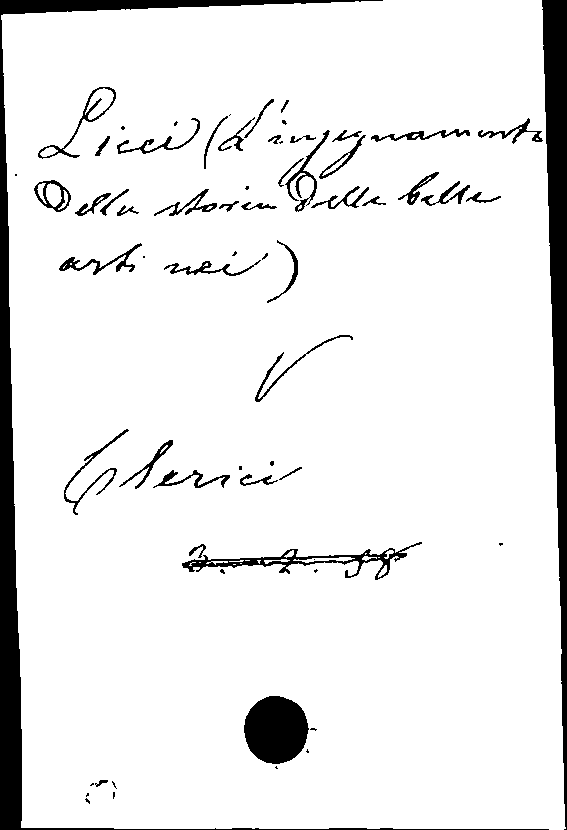 Licei (L'insegnamento
della storia delle belle
arti nei)
V
Clerici
3. 2. 58